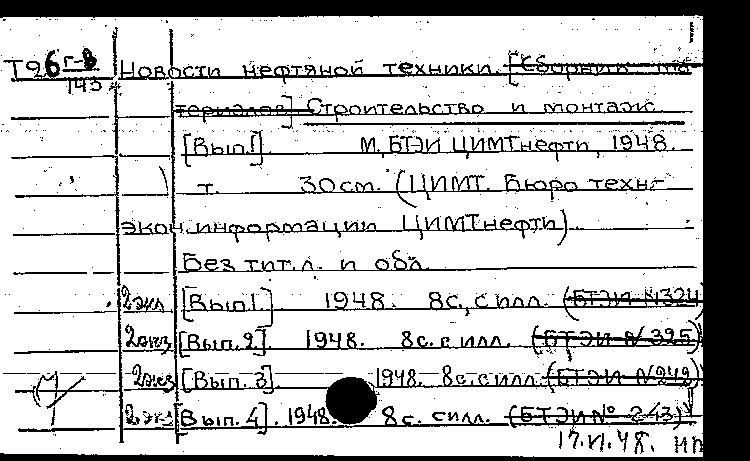 Т26 Г-В
143
Новости нефтяной техники. [Сборник ма
териалов] Строительство и монтаж.
[Вып.1]. М, БТЭИ ЦИМТнефти, 1948.
т. 30 см. (ЦИМТ. Бюро техн-
экон. информации ЦИМТнефти).
Без тит. л. и обл.
2экз [Вып1]. 1948. 8с, с илл. (БТЭИ №324)
2экз [Вып. 2]. 1948. 8с. с илл. (БТЭИ № 325)
2экз [Вып. 3]. 1948. 8с. с илл. (БТЭИ №249)
2экз [Вып. 4]. 1948. 8с. с илл. (БТЭИ № 243)
17.VI.48.